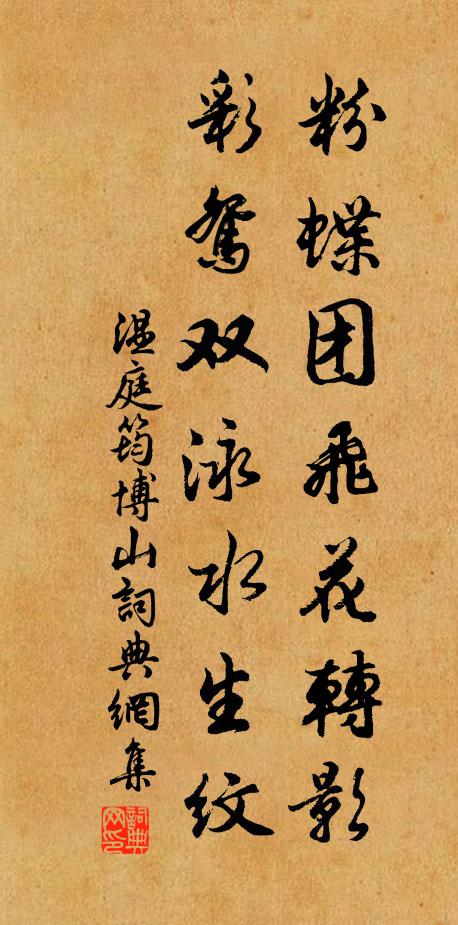 粉蝶团飛花轉影
彩鴛双泳水生紋
温庭筠博山詞典網集
詞典網印